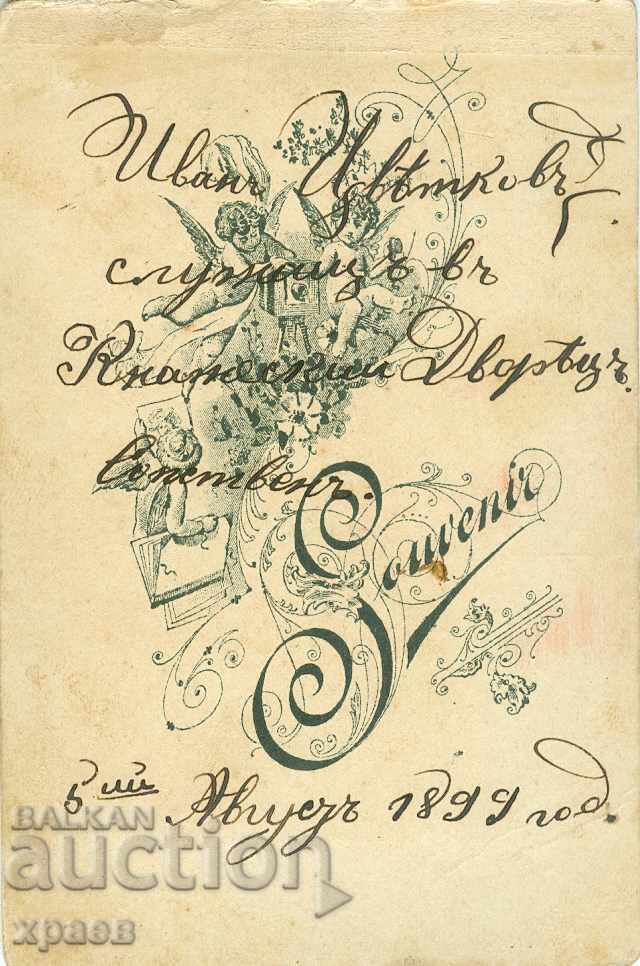 Иванъ Цвѣтковъ.
служащъ въ
Княжеский Дворѣцъ.
Souvenir
5ий Августъ 1899 год.
BALKAN
auction
храев